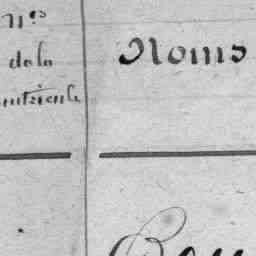 Nos
de la
matricule
Noms